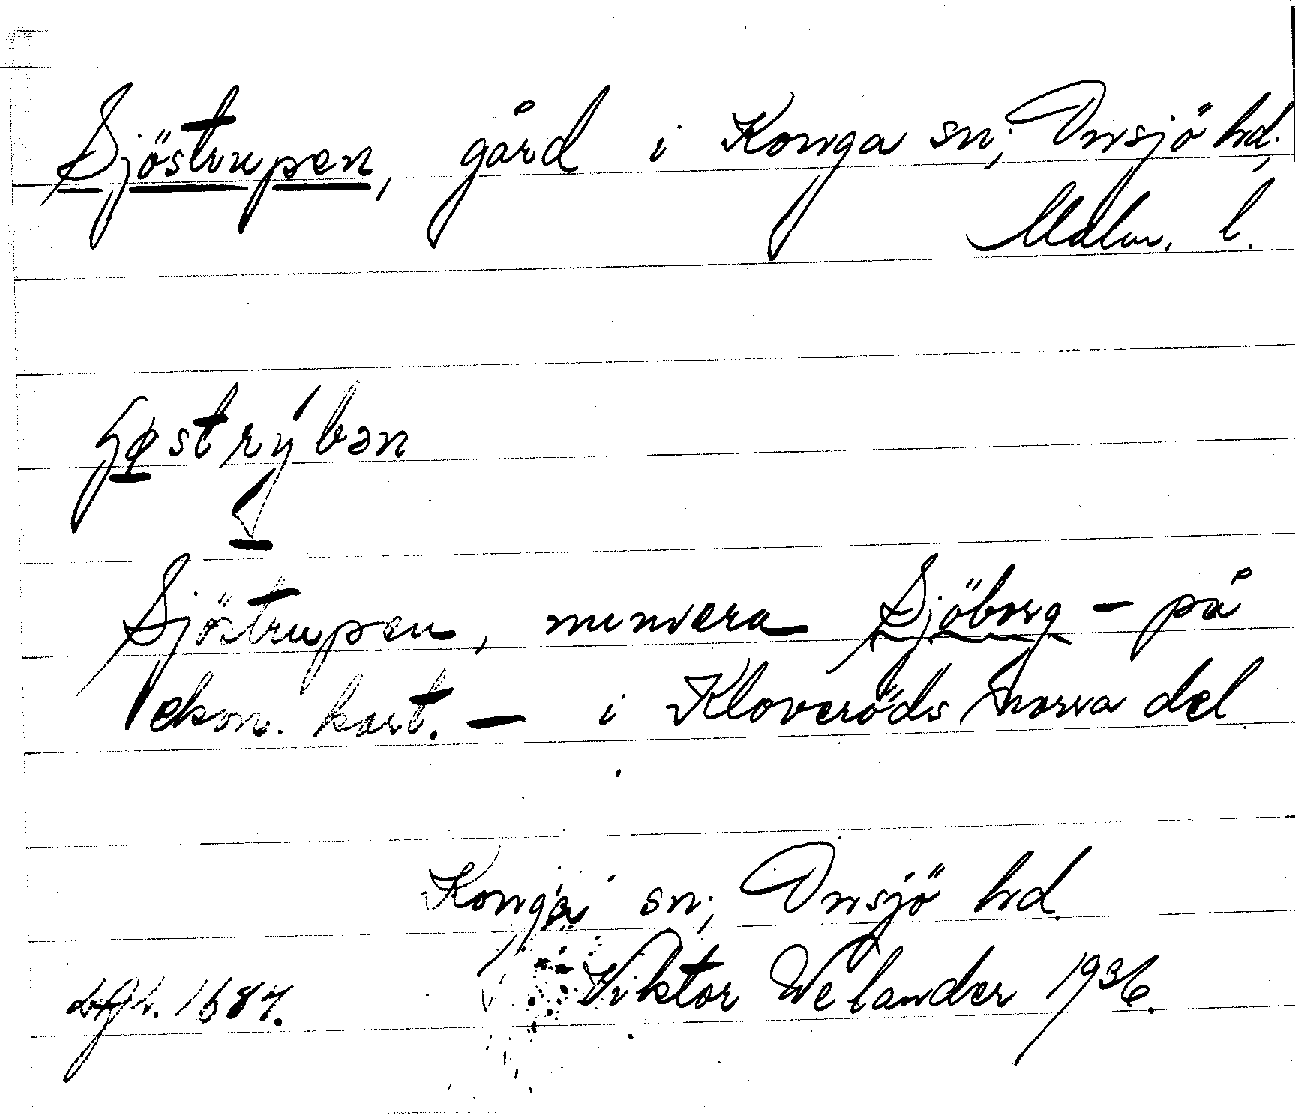 Sjöstrupen, gård i Konga sn; Onsjö hd;
Malm. l.
Sjöstrupen, numera Sjöborg – på
ekon. kart. – i Kloveröds norra del
Konga sn; Onsjö hd.
1687. Viktor Welander 1936.